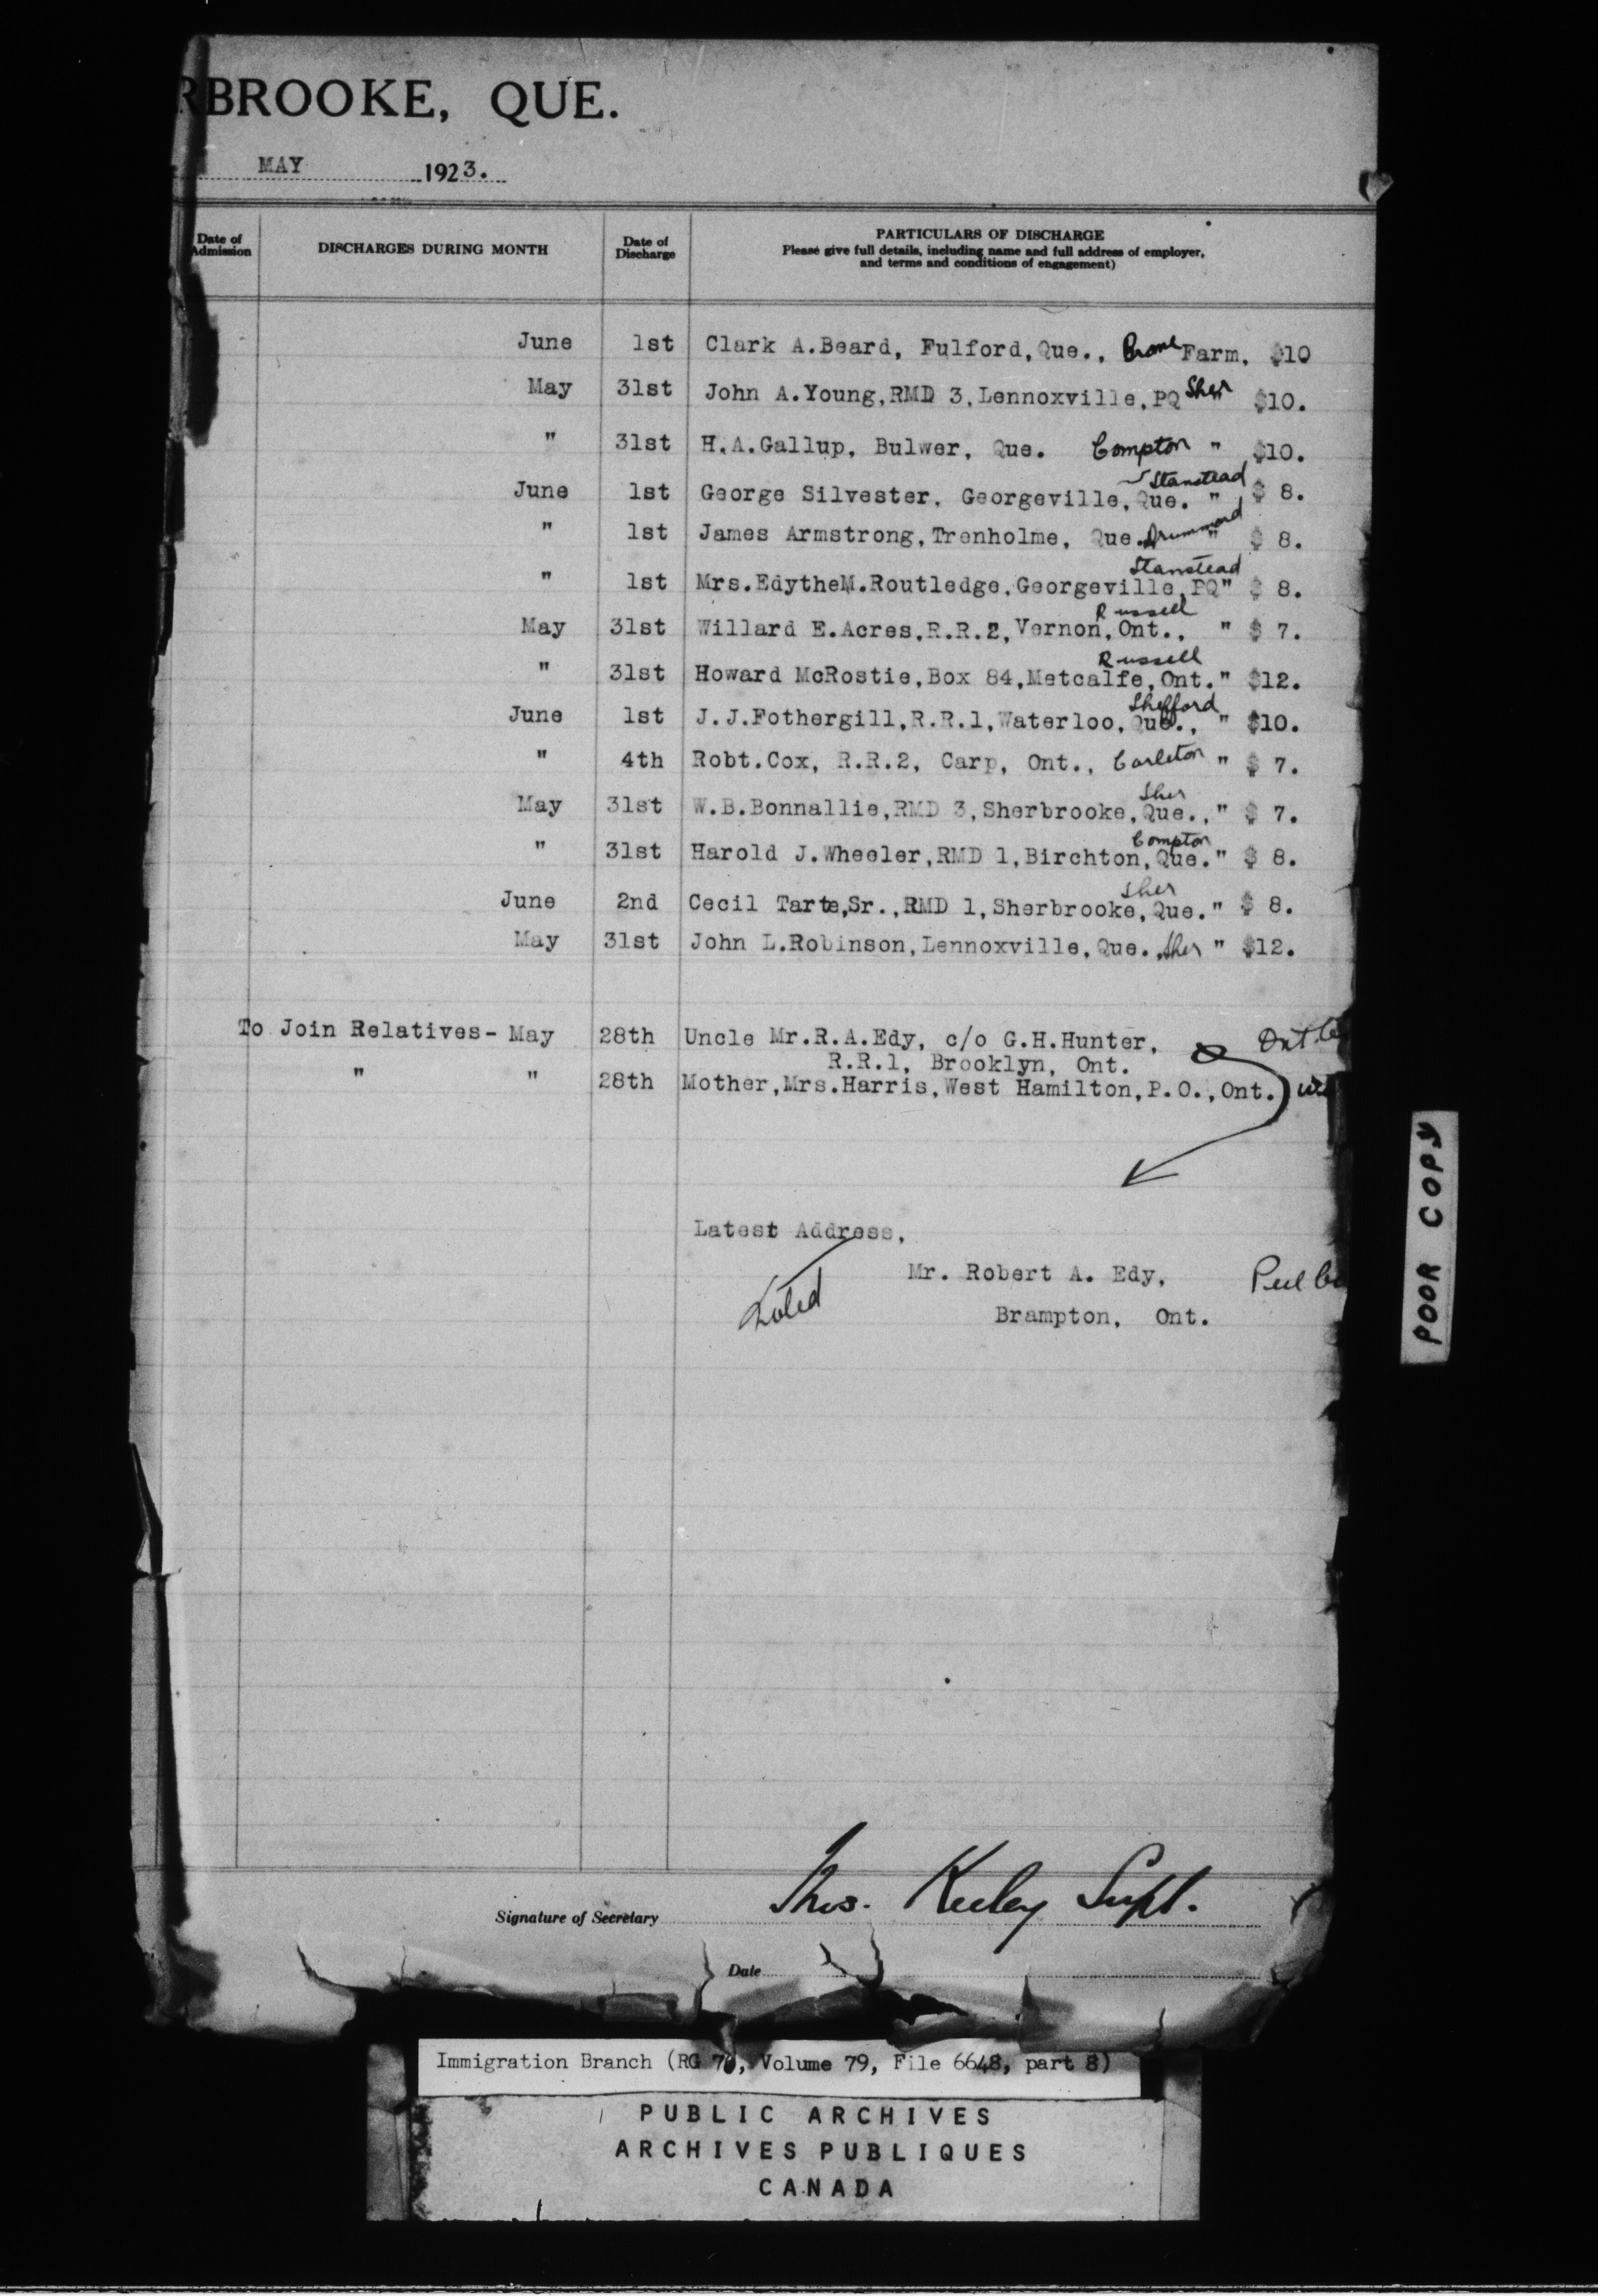 RBROOKE, QUE.
MAY 1923.
Date of Admission DISCHARGES DURING MONTH Date of Discharge PARTICULARS OF DISCHARGE
Please give full details, including name and full address of employer,
and terms and conditions of engagement)
June 1st Clark A.Beard, Fulford,Que., Brome Farm. $10
May 31st John A.Young,RMD 3,Lennoxville,PQ Sher " $10.
" 31st H.A.Gallup, Bulwer, Que. Compton " $10.
June 1st George Silvester, Georgeville,Que. Stanstead " $ 8.
" 1st James Armstrong,Trenholme, Que. Drummond " $ 8.
" 1st Mrs.EdytheM.Routledge,Georgeville,PQ Stanstead " $ 8.
May 31st Willard E.Acres,R.R.2,Vernon,Ont., Russell " $ 7.
" 31st Howard McRostie,Box 84,Metcalfe,Ont. Russell " $12.
June 1st J.J.Fothergill,R.R.1,Waterloo,Que., Shefford " $10.
" 4th Robt.Cox, R.R.2, Carp, Ont., Carleton " $ 7.
May 31st W.B.Bonnallie,RMD 3,Sherbrooke,Que., Sher " $ 7.
" 31st Harold J.Wheeler,RMD 1,Birchton,Que. Compton " $ 8.
June 2nd Cecil Tarte,Sr.,RMD 1,Sherbrooke,Que. Sher " $ 8.
May 31st John L.Robinson,Lennoxville,Que. Sher " $12.
To Join Relatives- May 28th Uncle Mr.R.A.Edy, c/o G.H.Hunter, Ont
R.R.1, Brooklyn, Ont.
" " 28th Mother,Mrs.Harris,West Hamilton,P.O.,Ont.
Latest Address,
Mr. Robert A. Edy, Peel Co
Brampton, Ont.
Signature of Secretary Thos. Keeley Supt.
Date
Immigration Branch (RG 76, Volume 79, File 6648, part 8)
PUBLIC ARCHIVES
ARCHIVES PUBLIQUES
CANADA
POOR COPY